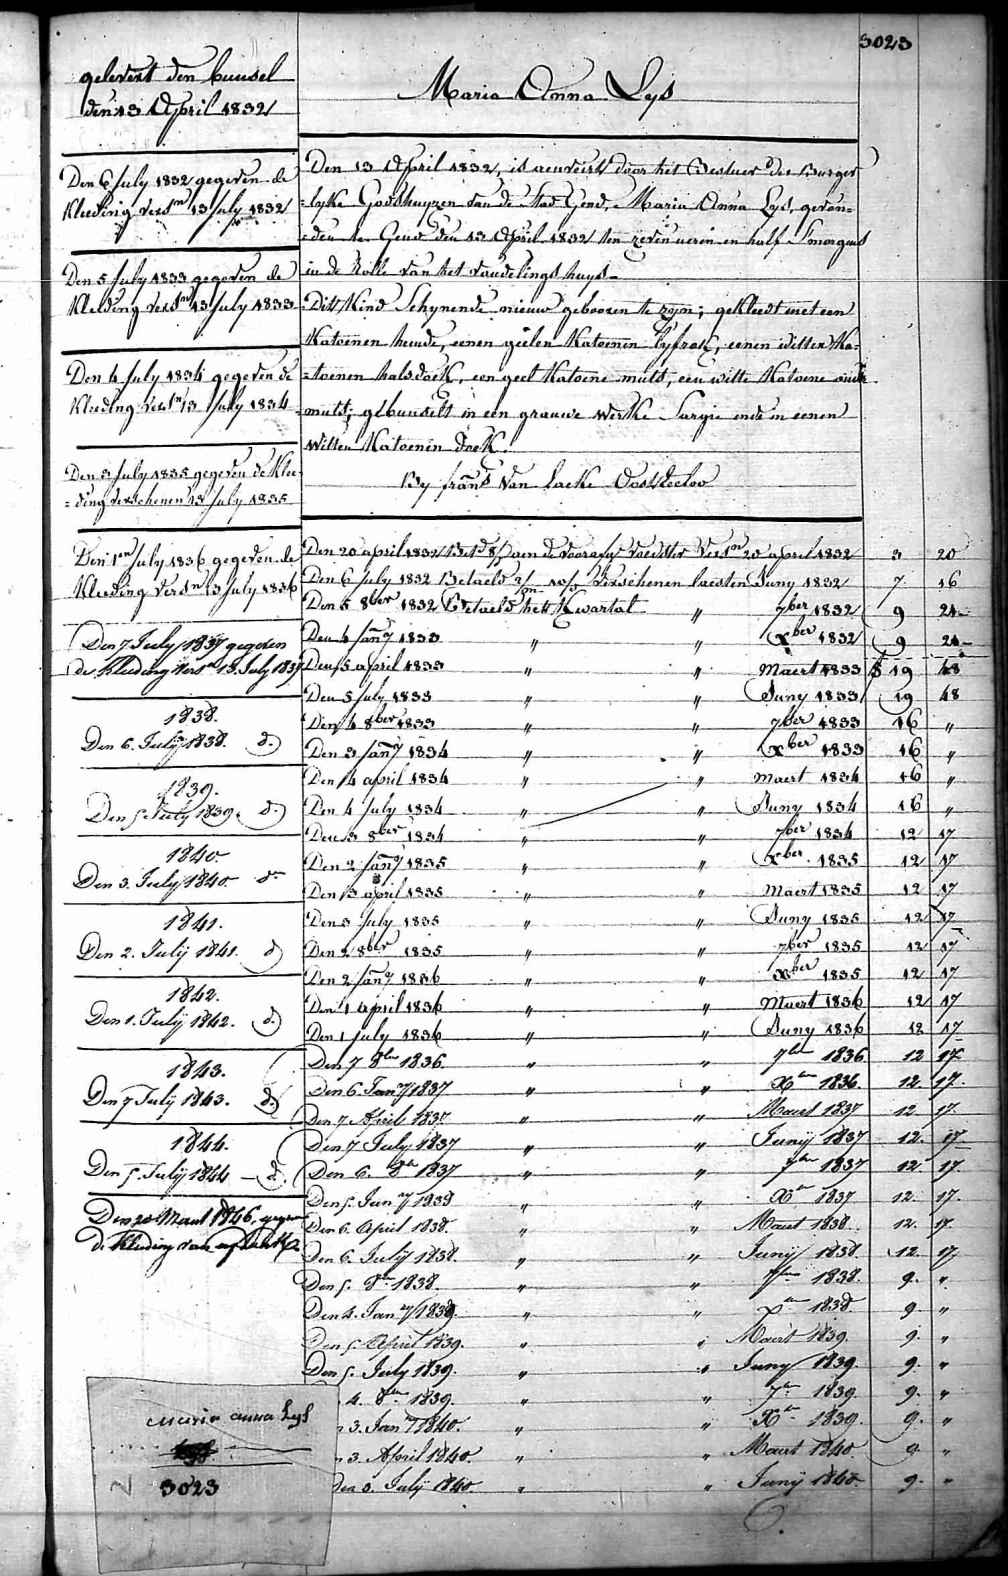 3023
gelevert den buusel
den 13 April 1832
Maria Anna Lys
Den 6 July 1832 gegeven de
Kleeding vers^n 13 July 1832
Den 5 July 1833 gegeven de
Kleeding vers^n 13 July 1833
Den 4 July 1834 gegeven de
Kleeding vers^n 13 July 1834
Den 3 July 1835 gegeven de Klee-
=ding verschenen 13 July 1835
Den 1^en July 1836 gegeven de
Kleeding vers^n 13 July 1836
Den 7 July 1837 gegeven
de Kleeding vers^n 13 July 1837
1838.
Den 6. July 1838. d.)
1839.
Den 5 July 1839. d.)
1840.
Den 3. July 1840. d^o
1841.
Den 2. July 1841. d)
1842.
Den 1. July 1842. d.)
1843.
Den 7 July 1843. d.)
1844.
Den 5. July 1844 — d.
Den 20 Maart 1846. gegeven
de Kleeding van
Den 13 April 1832, is door het Bestuer der Burger
=lyke Godshuyzen van de Stad Gend, Maria Anna Lys, gevon=
=den te Gend den 13 April 1832 ten zeven ueren en half Smorgens
in de Rolle van het vondelings huys-
Dit Kind Schynende nieuw gebooren te zyn; gekleedt met een
Katoenen hemde, eenen geelen Katoenen lyfrok, eenen witten Ka=
=toenen halsdoek, een geel Katoene muts, een witte Katoene onder
muts; gebuuselt in een grauwe werke Sargie ende in eenen
witten Katoenen doek.
By frans Van Laeke Oostëecloo
Den 20 april 1832 aen de voorafg voedster vers^n 20 april 1832 3 20
Den 6 July 1832 Betaelt verschenen laesten Juny 1832 7 16
Den 5 8ber 1832 Betaeld het Kwartal " 7ber 1832 9 24
Den 4 Jan^y 1833 " " Xber 1832 9 24
Den 5 april 1833 " " Maert 1833 19 48
Den 5 July 1833 " " Juny 1833 19 48
Den 4 8ber 1833 " " 7ber 1833 16 "
Den 3 Jan^y 1834 " " Xber 1833 16 "
Den 4 april 1834 " " maert 1834 16 "
Den 4 July 1834 " " Juny 1834 16 "
Den 3 8ber 1834 " " 7ber 1834 12 17
Den 2 Jan^y 1835 " " Xber 1835 12 17
Den 3 april 1835 " " maert 1835 12 17
Den 3 July 1835 " " Juny 1835 12 17
Den 2 8ber 1835 " " 7ber 1835 12 17
Den 2 Jan^y 1836 " " Xber 1835 12 17
Den 1 april 1836 " " Maert 1836 12 17
Den 1 July 1836 " " Juny 1836 12 17
Den 7 8ber 1836 " " 7ber 1836 12 17
Den 6 Jan^y 1837 " " Xber 1836 12 17.
Den 7 April 1837 " " Maert 1837 12 17.
Den 7 July 1837 " " Junij 1837 12. 17.
Den 6. 8ber 1837 " " 7ber 1837 12. 17.
Den 5. Jan^y 1838 " " Xber 1837 12. 17.
Den 6. April 1838. " " Maert 1838 12. 17.
Den 6. July 1838. " " Junij 1838. 12. 17
Den 5. 8ber 1838. " " 7ber 1838. 9. "
Den 4. Jan^y 1839. " " Xber 1838. 9. "
Den 5. April 1839. " " Maert 1839. 9. "
Den 5. July 1839. " " Juny 1839. 9. "
4. 8ber 1839. " " 7ber 1839. 9. "
3. Jan^y 1840. " " Xber 1839. 9. "
3. April 1840. " " Maert 1840. 9 "
Den 3. July 1840. " " Junij 1840. 9. "
Maria anna Lys
3023